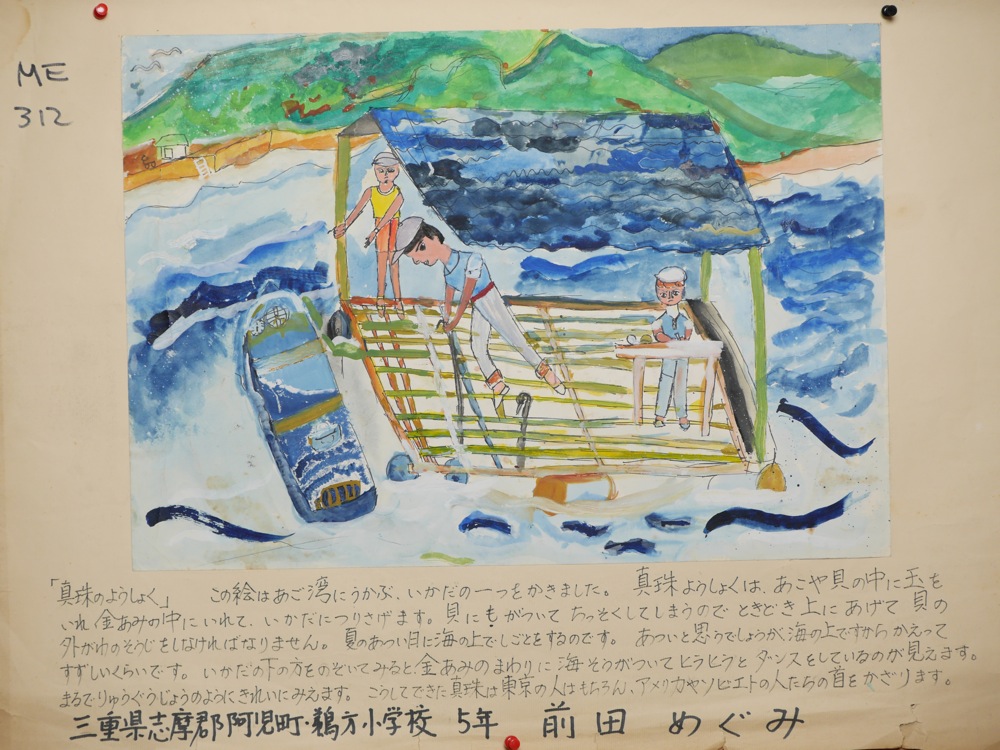 ME
312
「真珠のようしょく」 この絵はあごう湾にうかぶ、いかだの一つをかきました。 真珠ようしょくは、あこや貝の中に玉を
いれ金あみの中にいれて、いかだにつりさげます。貝にもがついてちっそくしてしまうのでときどき上にあげて貝の
外がわのそうじをしなければなりません。夏のあつい日に海の上でしごとをするのです。 あついと思うでしょうが、海の上ですからかえって
すずしいくらいです。いかだの下の方をのぞいてみると金あみのまわりに海そうがついてヒラヒラとダンスをしているのが見えます。
まるでりゅうぐうじょうのようにきれいにみえます。 こうしてできた真珠は東京の人はもちろん、アメリカやソビエトの人たちの首をかざります。
三重県志摩郡阿児町・鵜方小学校 5年 前田 めぐみ